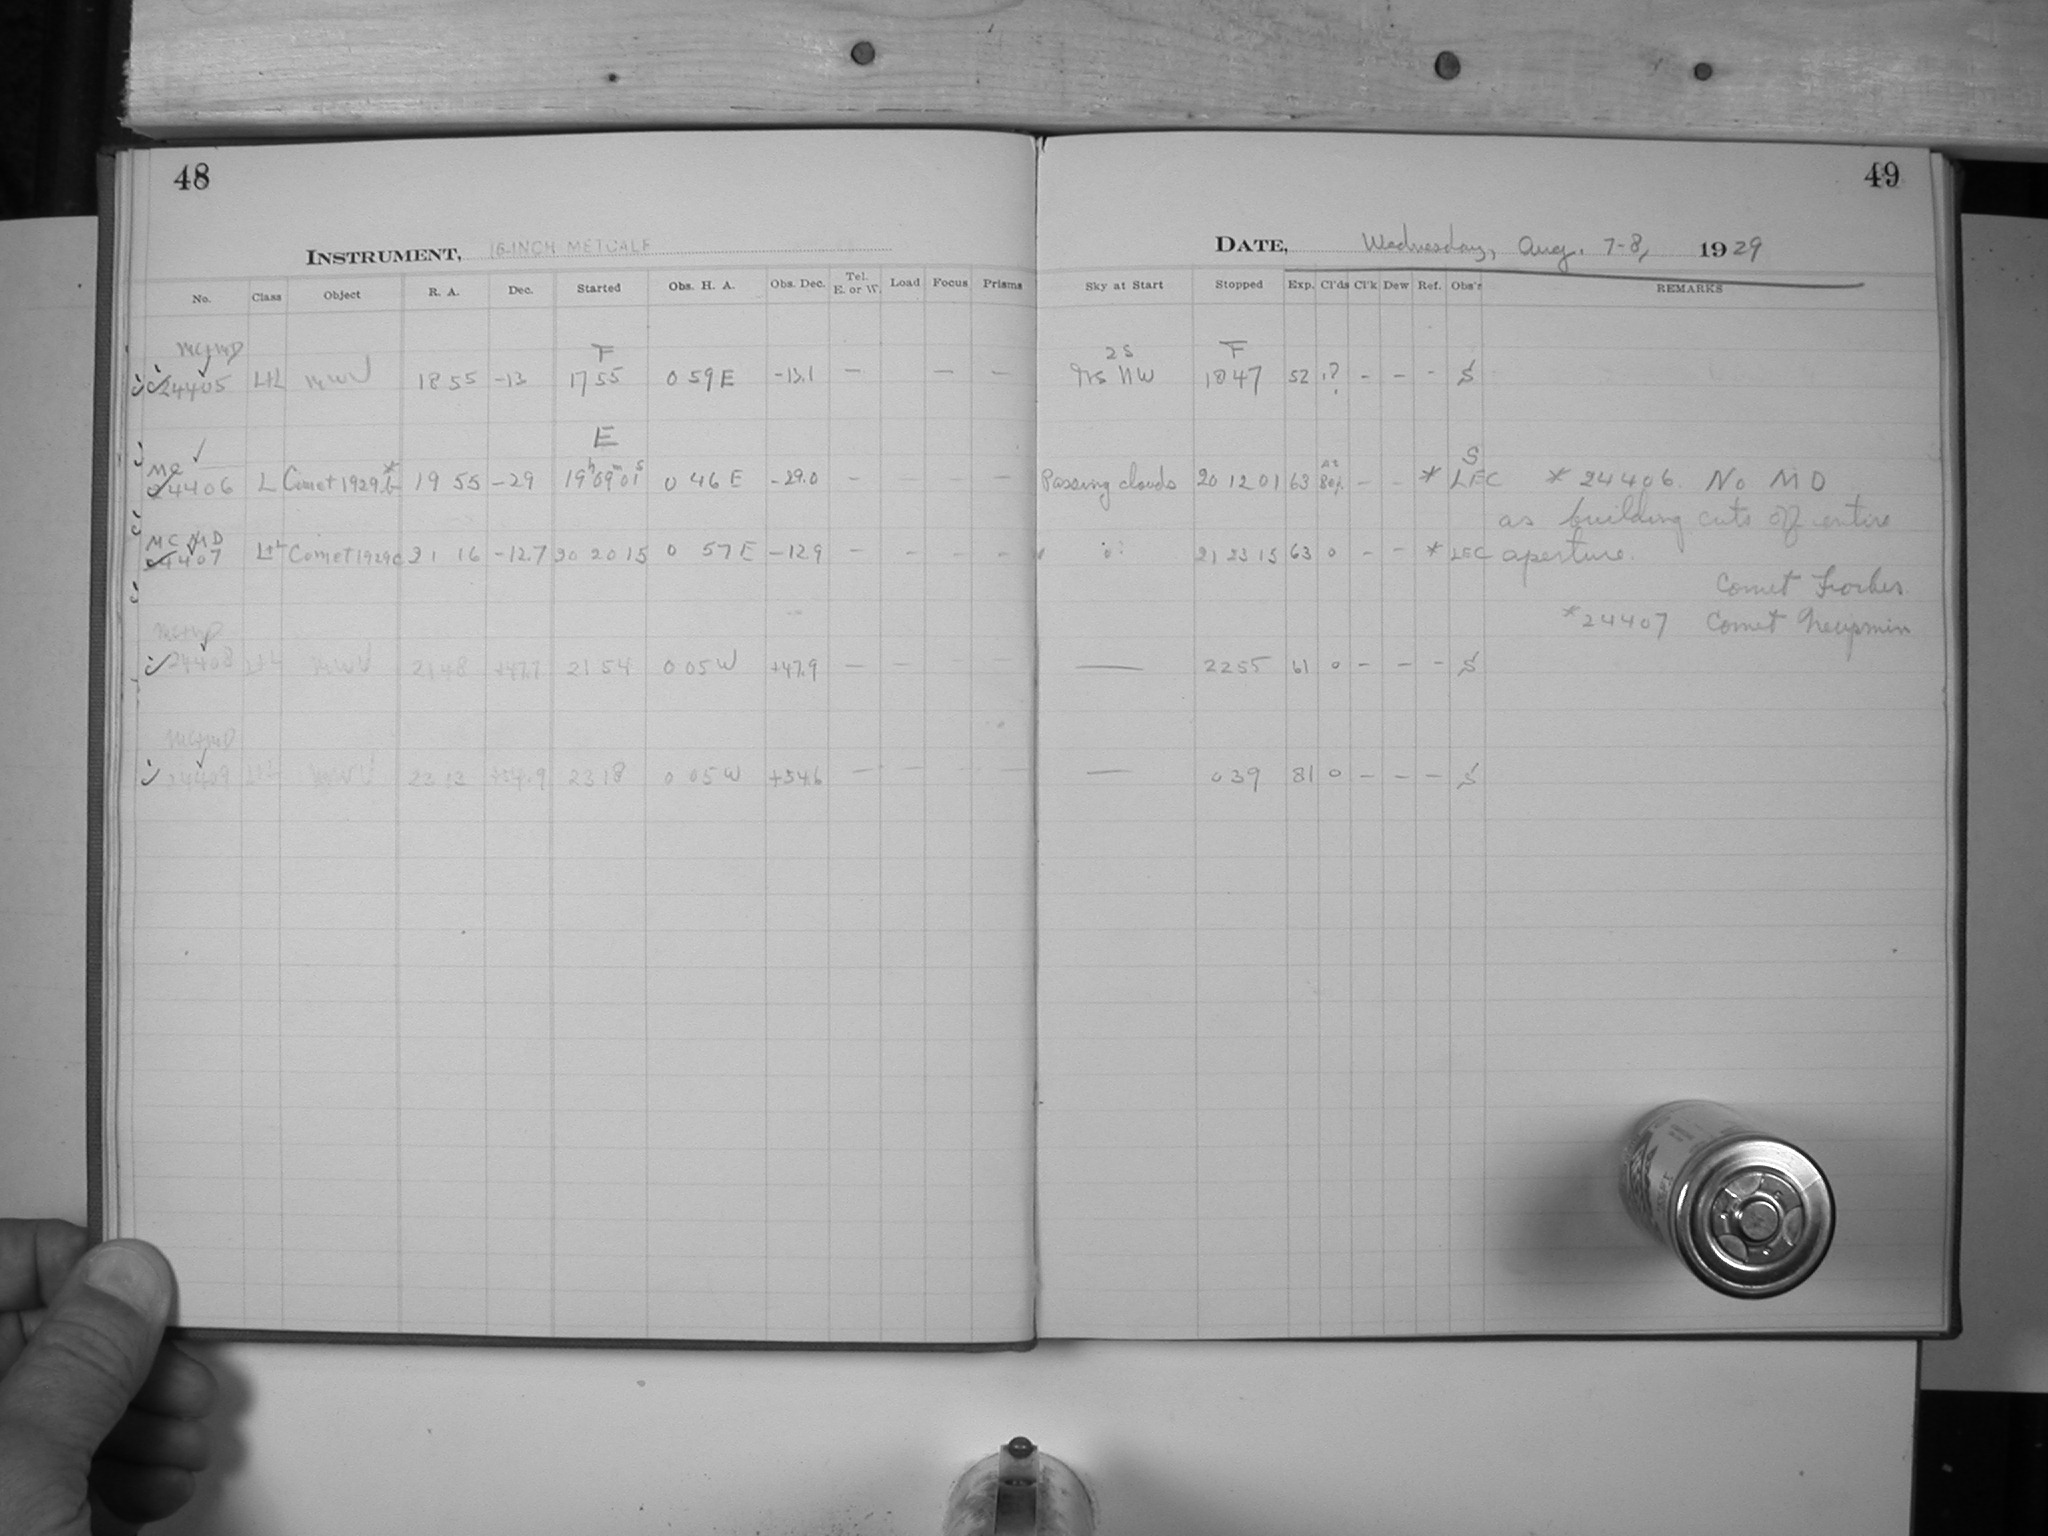 48
49
INSTRUMENT, 16-INCH METCALF
DATE, Wednesday, Aug. 7-8, 1929
No. Class Object R. A. Dec. Started Obs. H. A. Obs. Dec. Tel. E. or W. Load Focus Prisms Sky at Start Stopped Exp. Cl'ds Cl'k Dew Ref. Obs'r REMARKS
MC+MD F 2S F
24405 L+L MWV 18 55 -13 17 55 0 59 E -13.1 — — — NW 1847 52 .? - - - S
E
MC S
24406 L Comet 1929 b* 19 55 -29 19h 09m 01s 0 46 E -29.0 - - - - Passing clouds 20 12 01 63 80% - - * LEC * 24406. No MD
as building cuts off entire
MC MD
24407 L+L Comet 1929c 21 16 -12.7 20 20 15 0 57 E -12.9 - - - - 21 23 15 63 0 - - * LEC aperture.
Comet Forbes
* 24407 Comet Neujmin
MC+MD
24408 L+L MWV 2148 +47.7 21 54 0 05 W +47.9 — — — — — 2255 61 0 - - - S
MC+MD
24409 L+L MWV 23 12 2318 0 05 W +54.6 — — — — — 039 81 0 - - - S